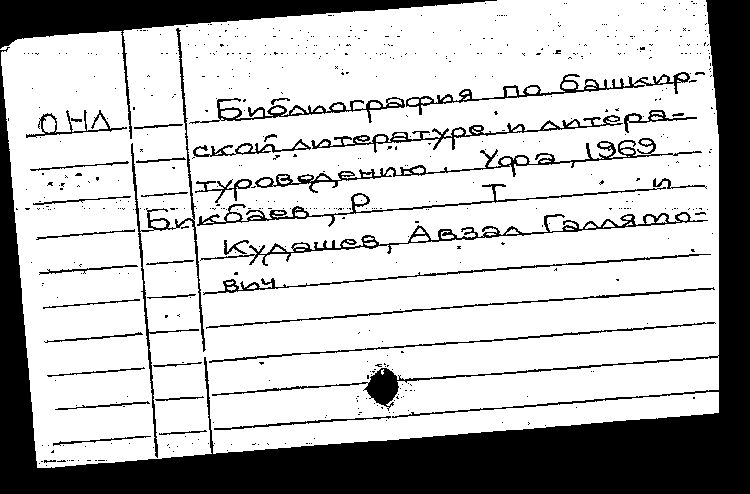 ОНЛ
Библиография по башкир-
ской литературе и литера-
туроведению. Уфа, 1969
Бикбаев, Р Т и
Кудашев, Авзал Галлямо-
вич.